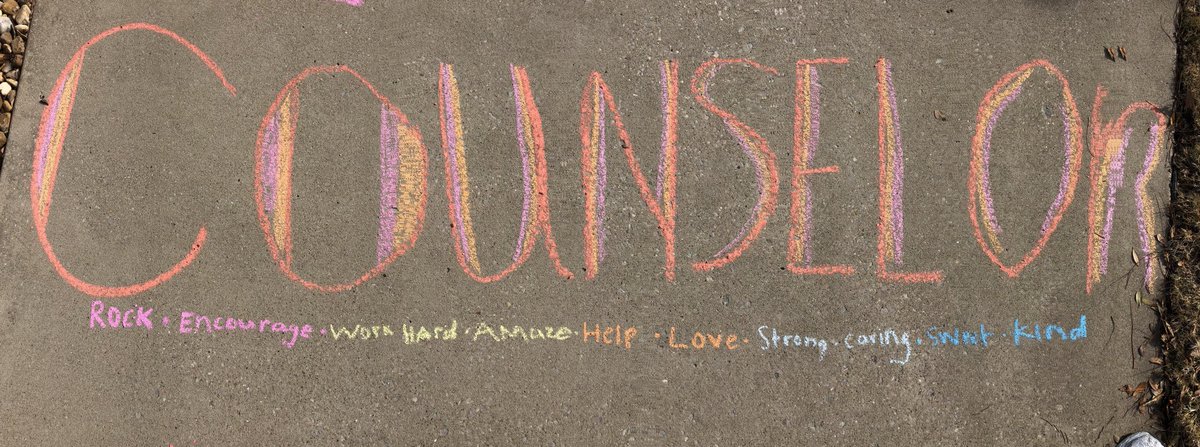 COUNSELOr
ROCK · Encourage · Work Hard · AMaze · Help · Love · Strong · caring · sweet · Kind